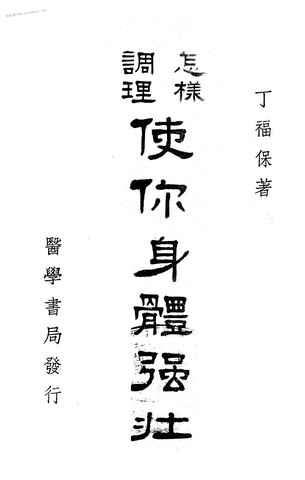 丁福保著
怎樣
調理
使你身體强壯
醫學書局發行